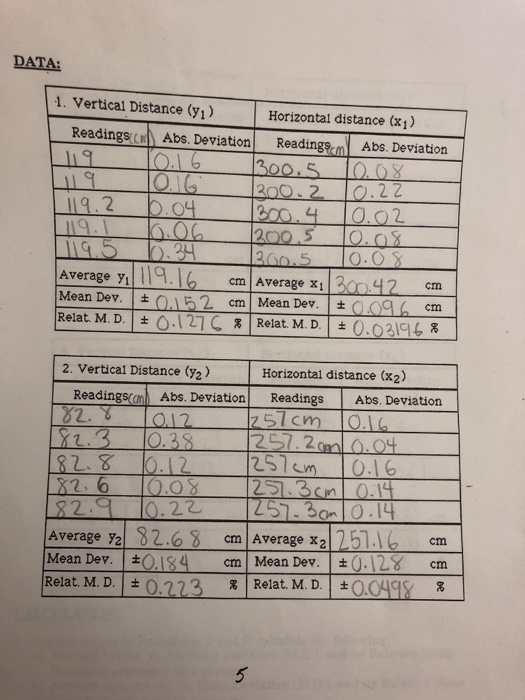 DATA:
1. Vertical Distance (y₁) Horizontal distance (x₁)
Readings(cm) Abs. Deviation Readings(cm) Abs. Deviation
119 0.16 300.5 0.08
119 0.16 300.2 0.22
119.2 0.04 300.4 0.02
119.1 0.06 300.5 0.08
119.5 0.34 300.5 0.08
Average y₁ 119.16 cm Average x₁ 300.42 cm
Mean Dev. ± 0.152 cm Mean Dev. ± 0.096 cm
Relat. M. D. ± 0.1276 % Relat. M. D. ± 0.03196 %
2. Vertical Distance (y₂) Horizontal distance (x₂)
Readings(cm) Abs. Deviation Readings Abs. Deviation
82.8 0.12 257cm 0.16
82.3 0.38 257.2cm 0.04
82.8 0.12 257cm 0.16
82.6 0.08 257.3cm 0.14
82.9 0.22 257.3cm 0.14
Average y₂ 82.68 cm Average x₂ 257.16 cm
Mean Dev. ±0.184 cm Mean Dev. ±0.128 cm
Relat. M. D. ± 0.223 % Relat. M. D. ±0.0498 %
5